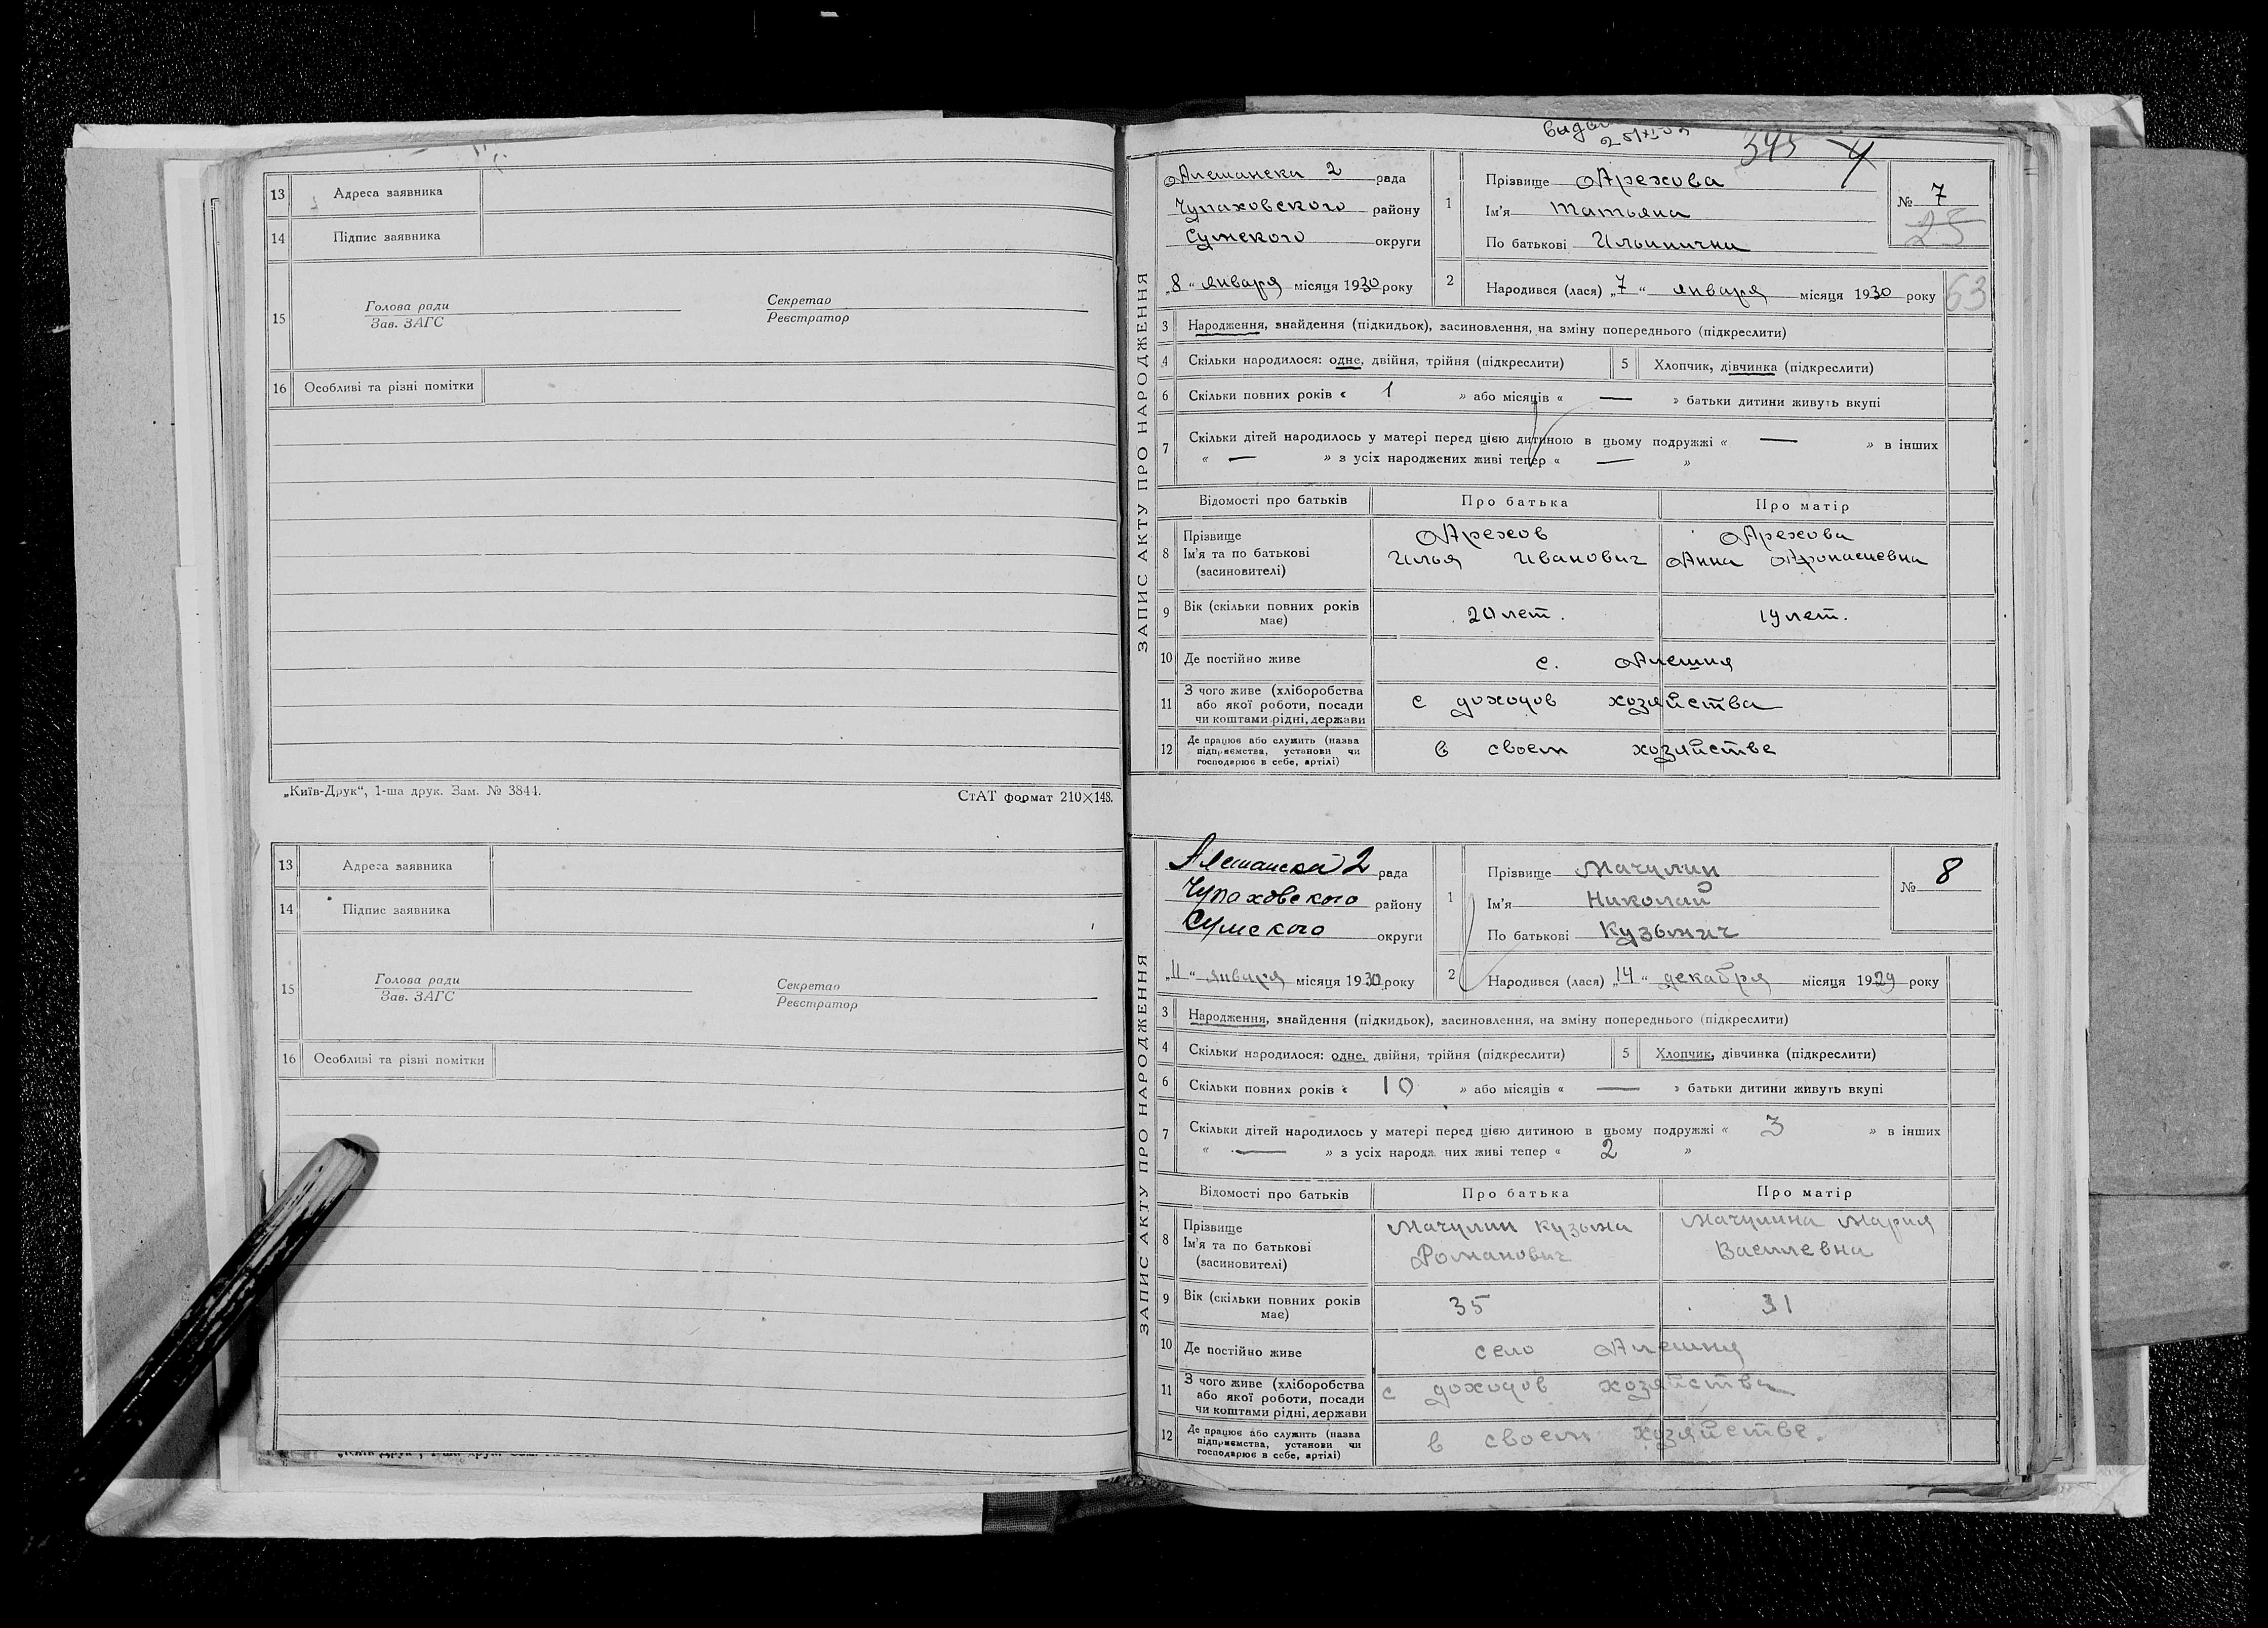 13 Адреса заявника
14 Підпис заявника
15 Голова ради Секретар
Зав. ЗАГС Реєстратор
16 Особливі та різні помітки
„Київ-Друк“, 1-ша друк. Зам. № 3844. СтАТ формат 210×148.
13 Адреса заявника
14 Підпис заявника
15 Голова ради Секретар
Зав. ЗАГС Реєстратор
16 Особливі та різні помітки
345 4
ЗАПИС АКТУ ПРО НАРОДЖЕННЯ
Алешанска 2 рада
Чупаховского району
Сумского округи
„8“ января місяця 1930 року
1 Прізвище Арехова
Ім'я Татьяна
По батькові Ильинична
№ 7
25
2 Народився (лася) „7“ января місяця 1930 року
63
3 Народження, знайдення (підкидьок), засиновлення, на зміну попереднього (підкреслити)
4 Скільки народилося: одне, двійня, трійня (підкреслити) 5 Хлопчик, дівчинка (підкреслити)
6 Скільки повних років « 1 » або місяців « — » батьки дитини живуть вкупі
7 Скільки дітей народилось у матері перед цією дитиною в цьому подружжі « — » в інших
« — » з усіх народжених живі тепер « — »
Відомості про батьків Про батька Про матір
8 Прізвище Арехов Арехова
Ім'я та по батькові Илья Иванович Анна
(засиновителі)
9 Вік (скільки повних років 20 лет. 19 лет.
має)
10 Де постійно живе с. Алешня
11 З чого живе (хліборобства с доходов хозяйства
або якої роботи, посади
чи коштами рідні, держави
12 Де працює або служить (назва в своем хозяйстве
підприємства, установи чи
господарює в себе, артілі)
ЗАПИС АКТУ ПРО НАРОДЖЕННЯ
Алешанска 2 рада
Чупаховского району
Сумского округи
„11“ января місяця 1930 року
1 Прізвище Мачулин
Ім'я Николай
По батькові Кузьмич
№ 8
2 Народився (лася) „14“ декабря місяця 1929 року
3 Народження, знайдення (підкидьок), засиновлення, на зміну попереднього (підкреслити)
4 Скільки народилося: одне, двійня, трійня (підкреслити) 5 Хлопчик, дівчинка (підкреслити)
6 Скільки повних років « 10 » або місяців « — » батьки дитини живуть вкупі
7 Скільки дітей народилось у матері перед цією дитиною в цьому подружжі « 3 » в інших
« — » з усіх народж них живі тепер « 2 »
Відомості про батьків Про батька Про матір
8 Прізвище Мачулин Кузьма Мачулина Мария
Ім'я та по батькові Романович Василевна
(засиновителі)
9 Вік (скільки повних років 35 31
має)
10 Де постійно живе село Алешня
11 З чого живе (хліборобства с доходов хозяйства
або якої роботи, посади
чи коштами рідні, держави
12 Де працює або служить (назва в своем хозяйстве.
підприємства, установи чи
господарює в себе, артілі)